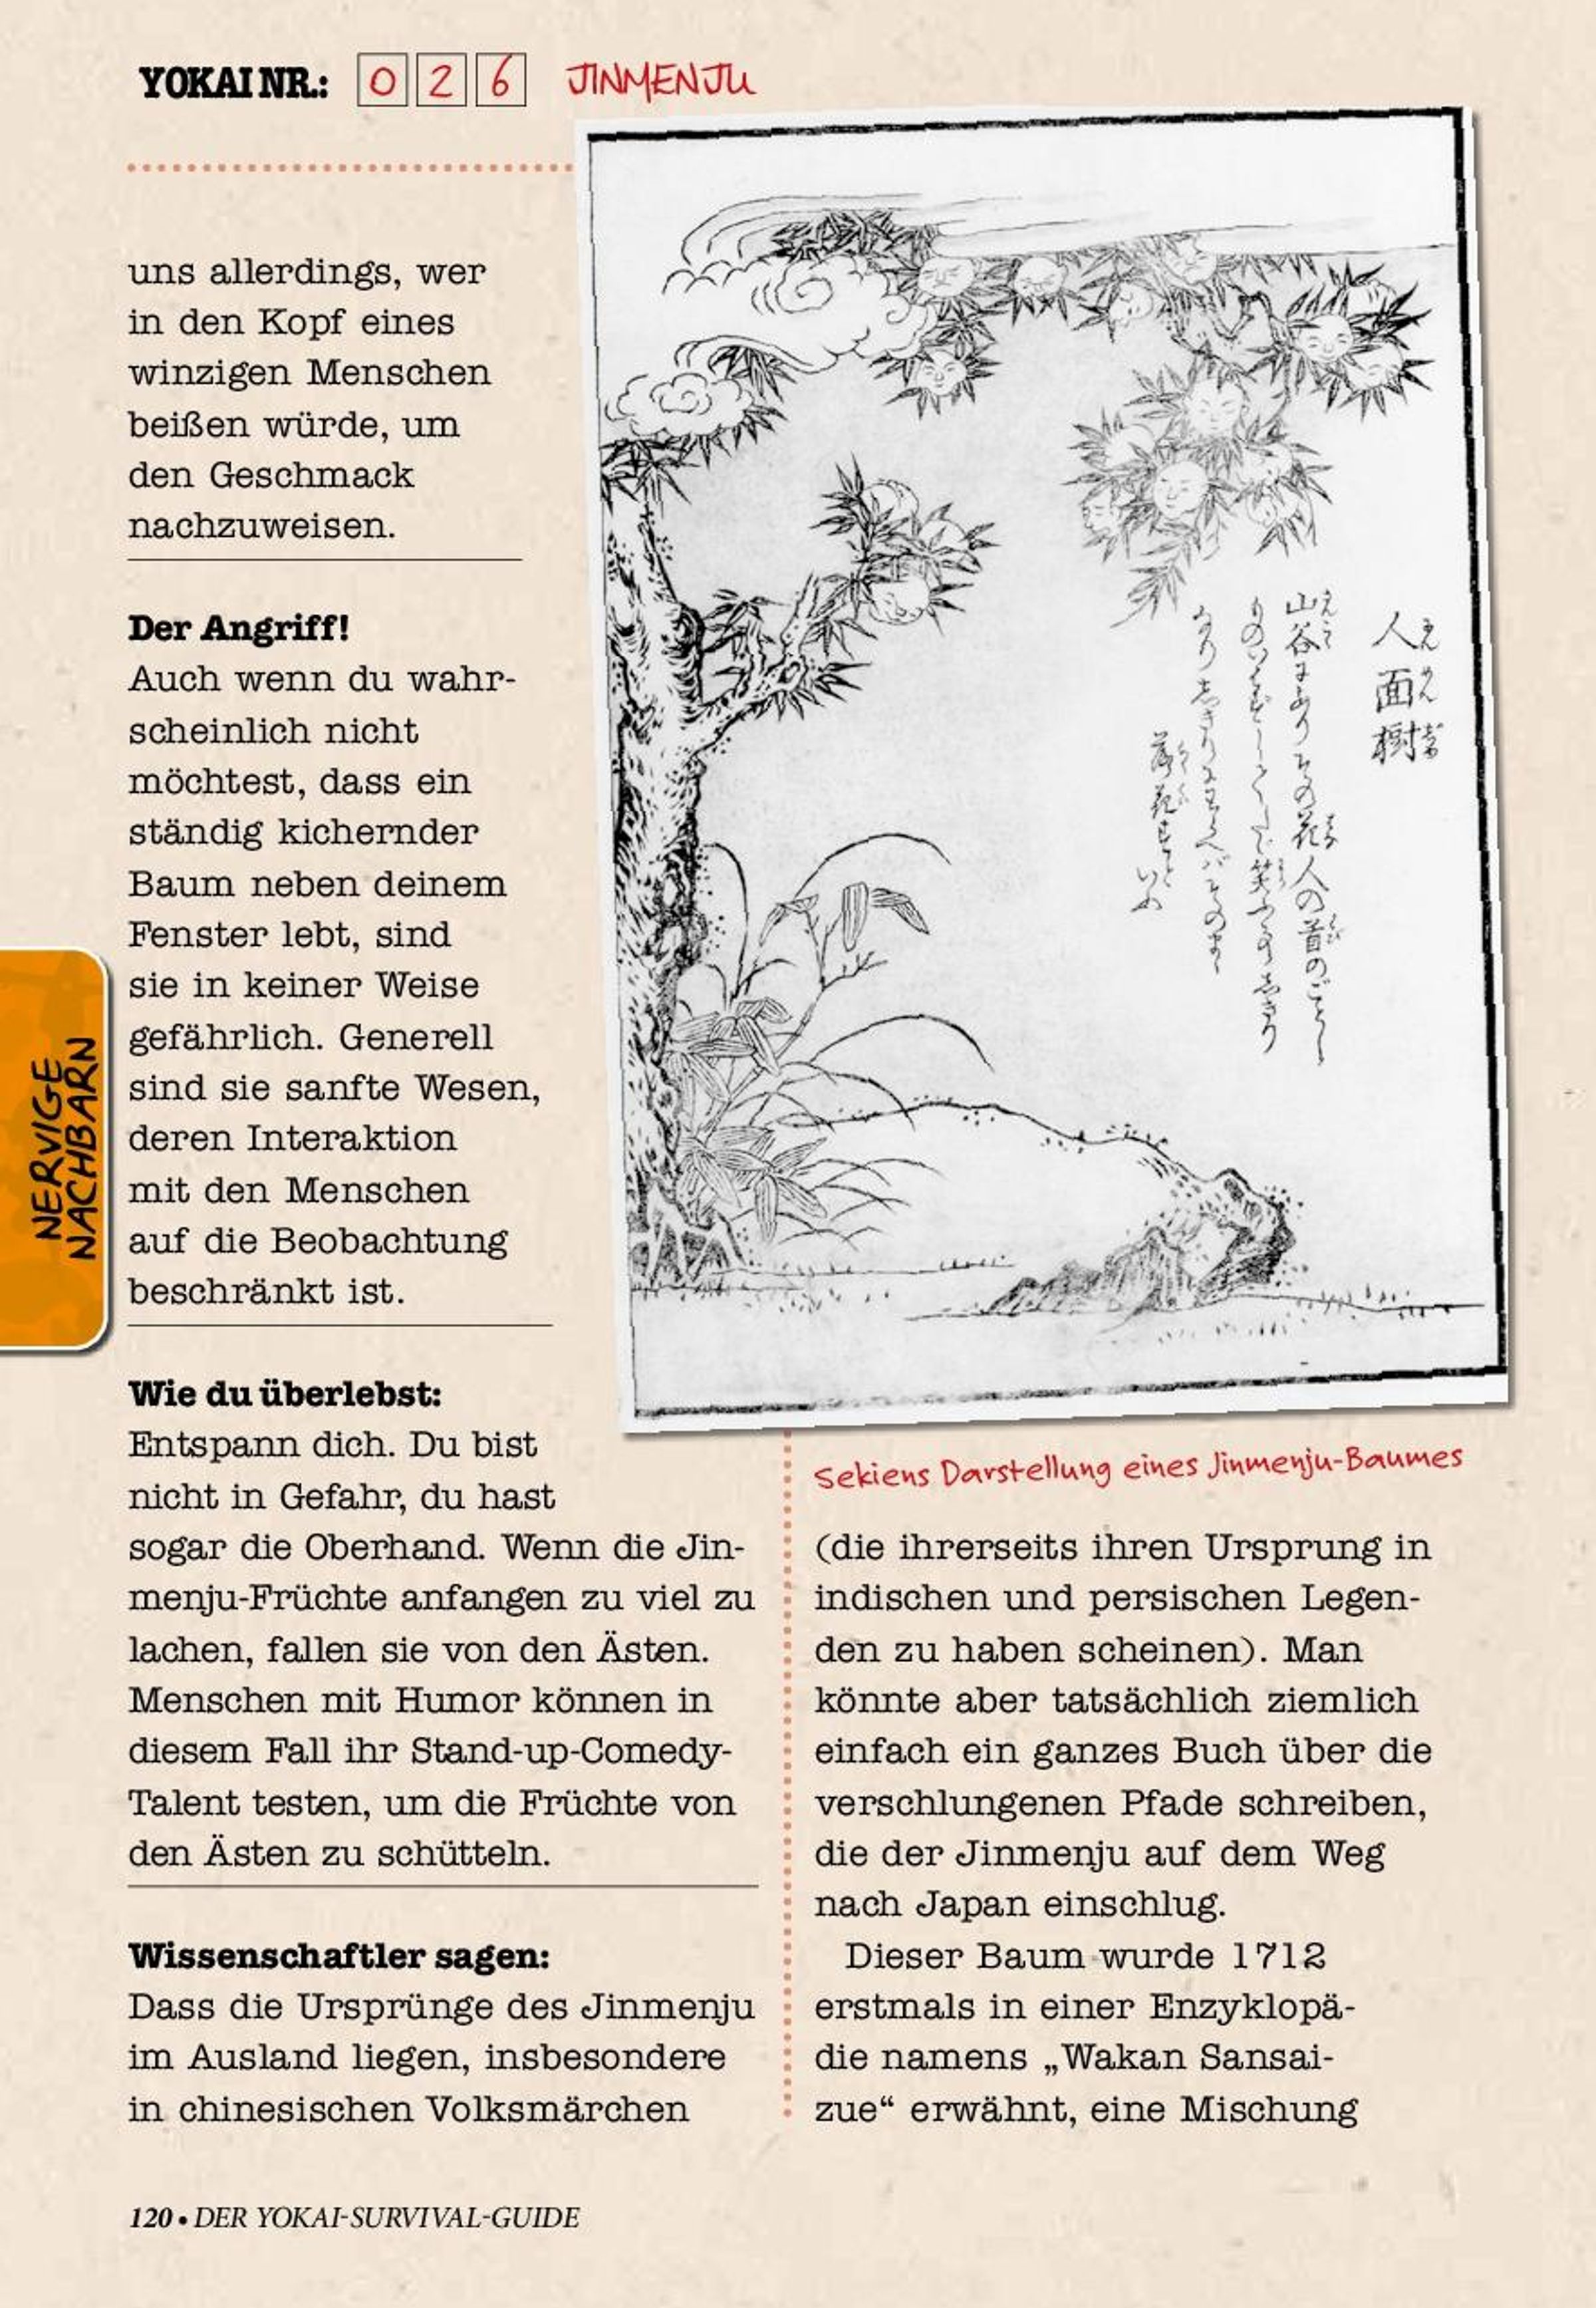 YOKAI NR.: 026 JINMENJU
uns allerdings, wer
in den Kopf eines
winzigen Menschen
beißen würde, um
den Geschmack
nachzuweisen.
Der Angriff!
Auch wenn du wahr-
scheinlich nicht
möchtest, dass ein
ständig kichernder
Baum neben deinem
Fenster lebt, sind
sie in keiner Weise
gefährlich. Generell
sind sie sanfte Wesen,
deren Interaktion
mit den Menschen
auf die Beobachtung
beschränkt ist.
Wie du überlebst:
Entspann dich. Du bist
nicht in Gefahr, du hast
sogar die Oberhand. Wenn die Jin-
menju-Früchte anfangen zu viel zu
lachen, fallen sie von den Ästen.
Menschen mit Humor können in
diesem Fall ihr Stand-up-Comedy-
Talent testen, um die Früchte von
den Ästen zu schütteln.
Wissenschaftler sagen:
Dass die Ursprünge des Jinmenju
im Ausland liegen, insbesondere
in chinesischen Volksmärchen
人面樹
山谷にありその花人の首のごとし
ものいはずしてたゞ笑ふ事しきり
なりしきりにわらへバそのまゝ
落花すと
いふ
Sekiens Darstellung eines Jinmenju-Baumes
(die ihrerseits ihren Ursprung in
indischen und persischen Legen-
den zu haben scheinen). Man
könnte aber tatsächlich ziemlich
einfach ein ganzes Buch über die
verschlungenen Pfade schreiben,
die der Jinmenju auf dem Weg
nach Japan einschlug.
Dieser Baum wurde 1712
erstmals in einer Enzyklopä-
die namens „Wakan Sansai-
zue“ erwähnt, eine Mischung
NERVIGE
NACHBARN
120 • DER YOKAI-SURVIVAL-GUIDE